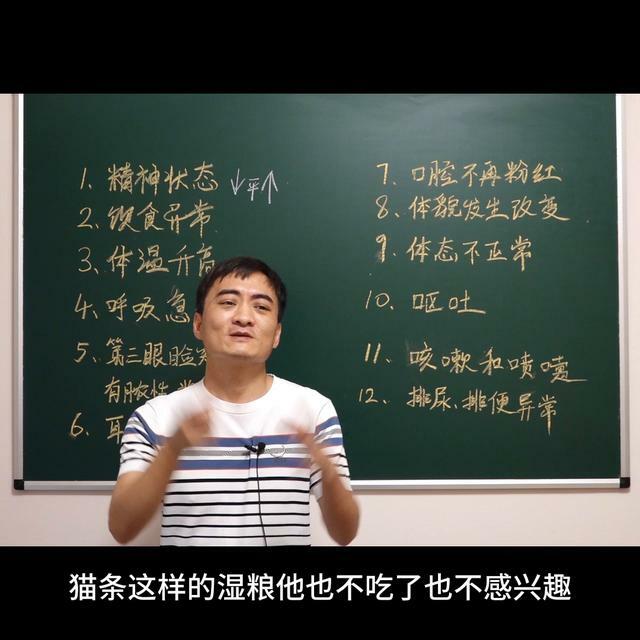 1、精神状态 ↓平↑
2、饮食异常
3、体温升高
4、呼吸急
5、第三眼睑
有脓性
6、耳
7、口腔不再粉红
8、体貌发生改变
9、体态不正常
10、呕吐
11、咳嗽和喷嚏
12、排尿、排便异常
猫条这样的湿粮他也不吃了也不感兴趣